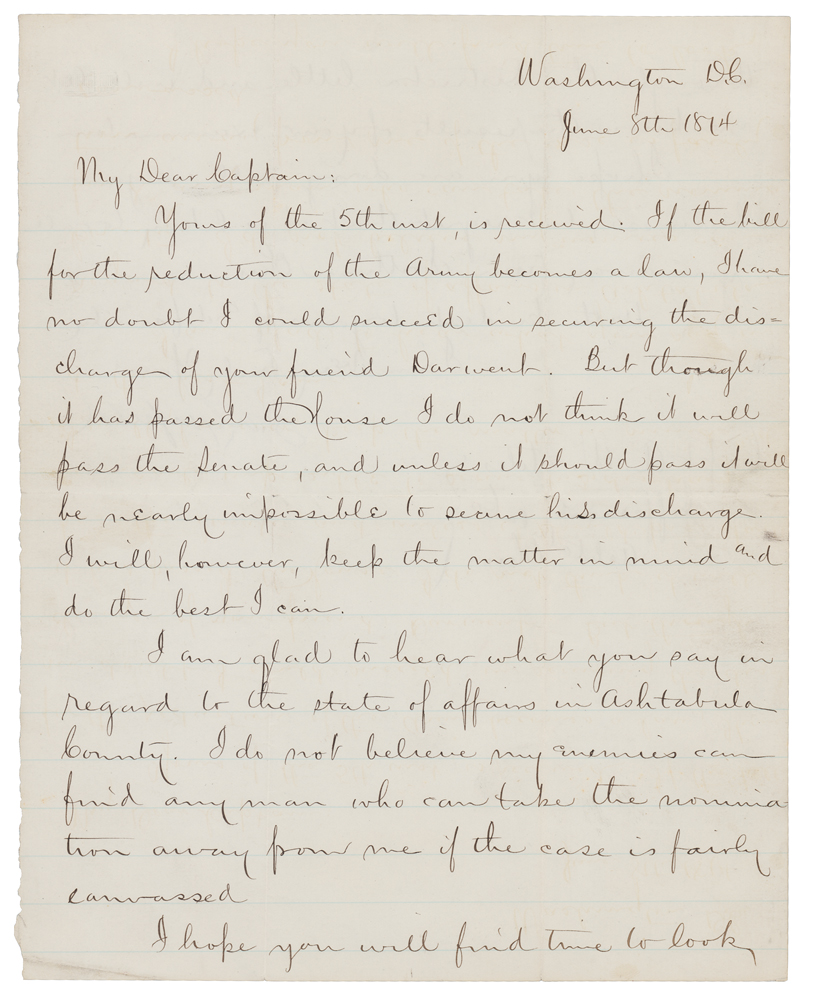 Washington D.C.
June 8th 1874
My Dear Captain:
Yours of the 5th inst, is received. If the bill
for the reduction of the Army becomes a law, I have
no doubt I could succeed in securing the dis=
charge of your friend Darwent. But though
it has passed the House I do not think it will
pass the Senate, and unless it should pass it will
be nearly impossible to secure his discharge.
I will, however, keep the matter in mind and
do the best I can.
I am glad to hear what you say in
regard to the state of affairs in Ashtabula
County. I do not believe my enemies can
find any man who can take the nomina
tion away from me if the case is fairly
canvassed
I hope you will find time to look